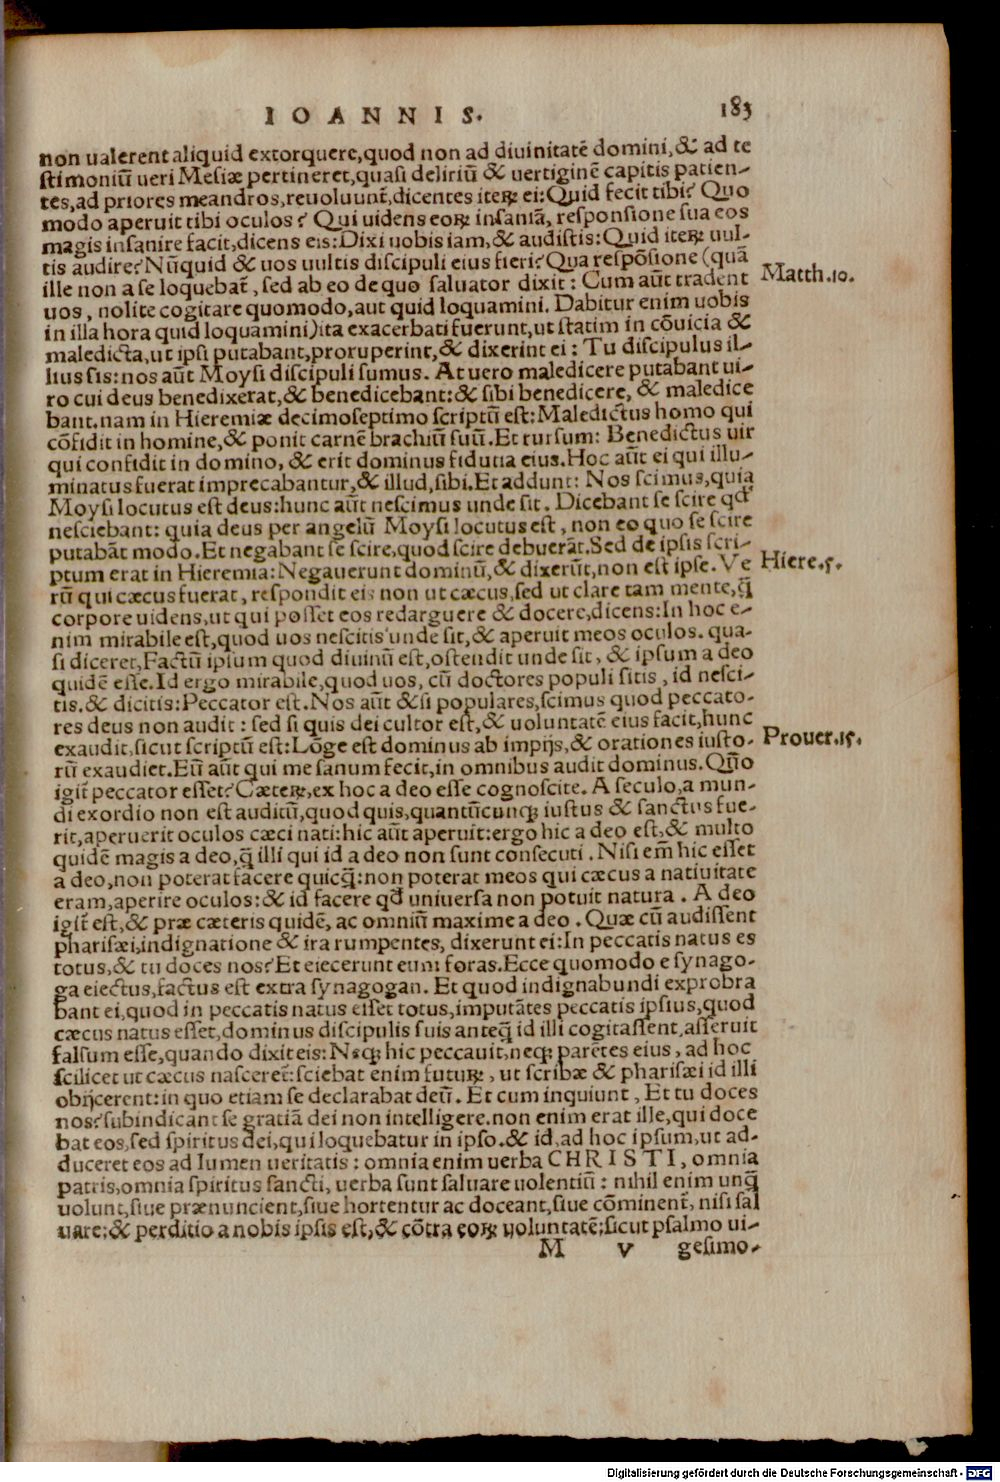 IOANNIS. 183
non ualerent aliquid extorquere, quod non ad diuinitatē domini, & ad te
stimoniū ueri Mesiæ pertineret, quasi deliriū & uertiginē capitis patien-
tes, ad priores meandros, reuoluunt̄, dicentes iteꝝ ei: Quid fecit tibi? Quo
modo aperuit tibi oculos? Qui uidens eoꝝ insaniā, responsione sua eos
magis insanire facit, dicens eis: Dixi uobis iam, & audistis: Quid iteꝝ uul-
tis audire? Nūquid & uos uultis discipuli eius fieri? Qua respōsione (quā
ille non a se loquebat̄, sed ab eo de quo saluator dixit: Cum aūt tradent Matth.10.
uos, nolite cogitare quomodo, aut quid loquamini. Dabitur enim uobis
in illa hora quid loquamini) ita exacerbati fuerunt, ut statim in cōuicia &
maledicta, ut ipsi putabant, proruperint, & dixerint ei: Tu discipulus il-
lius sis: nos aūt Moysi discipuli sumus. At uero maledicere putabant ui-
ro cui deus benedixerat, & benedicebant: & sibi benedicere, & maledice
bant. nam in Hieremiæ decimoseptimo scriptū est: Maledictus homo qui
cōfidit in homine, & ponit carnē brachiū suū. Et rursum: Benedictus uir
qui confidit in domino, & erit dominus fidutia eius. Hoc aūt ei qui illu-
minatus fuerat imprecabantur, & illud, sibi. Et addunt: Nos scimus, quia
Moysi locutus est deus: hunc aūt nescimus unde sit. Dicebant se scire qd̄
nesciebant: quia deus per angelū Moysi locutus est, non eo quo se scire
putabāt modo. Et negabant se scire, quod scire debuerāt. Sed de ipsis scri-
ptum erat in Hieremia: Negauerunt dominū, & dixerūt, non est ipse. Ve Hiere.5.
rū qui cæcus fuerat, respondit eis non ut cæcus, sed ut clare tam mente, q̄
corpore uidens, ut qui posset eos redarguere & docere, dicens: In hoc e-
nim mirabile est, quod uos nescitis unde sit, & aperuit meos oculos. qua-
si diceret, Factū ipsum quod diuinū est, ostendit unde sit, & ipsum a deo
quidē esse. Id ergo mirabile, quod uos, cū doctores populi sitis, id nesci-
tis. & dicitis: Peccator est. Nos aūt & si populares, scimus quod peccato-
res deus non audit: sed si quis dei cultor est, & uoluntatē eius facit, hunc
exaudit, sicut scriptū est: Lōge est dominus ab impijs, & orationes iusto- Prouer.15.
rū exaudiet. Eū aūt qui me sanum fecit, in omnibus audit dominus. Quō
igit̄ peccator esset? Cæteꝝ, ex hoc a deo esse cognoscite. A seculo, a mun-
di exordio non est auditū, quod quis, quantūcunqꝫ iustus & sanctus fue-
rit, aperuerit oculos cæci nati: hic aūt aperuit: ergo hic a deo est, & multo
quidē magis a deo, q̄ illi qui id a deo non sunt consecuti. Nisi em̄ hic esset
a deo, non poterat facere quicq̄: non poterat meos qui cæcus a natiuitate
eram, aperire oculos: & id facere qd̄ uniuersa non potuit natura. A deo
igit̄ est, & præ cæteris quidē, ac omniū maxime a deo. Quæ cū audissent
pharisæi, indignatione & ira rumpentes, dixerunt ei: In peccatis natus es
totus, & tu doces nos? Et eiecerunt eum foras. Ecce quomodo e synago-
ga eiectus, factus est extra synagogan. Et quod indignabundi exprobra
bant ei, quod in peccatis natus esset totus, imputātes peccatis ipsius, quod
cæcus natus esset, dominus discipulis suis anteq̄ id illi cogitassent, asseruit
falsum esse, quando dixit eis: Neqꝫ hic peccauit, neqꝫ parētes eius, ad hoc
scilicet ut cæcus nasceret̄: sciebat enim futuꝝ, ut scribæ & pharisæi id illi
obijcerent: in quo etiam se declarabat deū. Et cum inquiunt, Et tu doces
nos? subindicant se gratiā dei non intelligere. non enim erat ille, qui doce
bat eos, sed spiritus dei, qui loquebatur in ipso. & id, ad hoc ipsum, ut ad-
duceret eos ad lumen ueritatis: omnia enim uerba CHRISTI, omnia
patris, omnia spiritus sancti, uerba sunt saluare uolentiū: nihil enim unq̄
uolunt, siue prænuncient, siue hortentur ac doceant, siue cōminent̄, nisi sal
uare: & perditio a nobis ipsis est, & cōtra eoꝝ uoluntatē: sicut psalmo ui-
M v gesimo-
Digitalisierung gefördert durch die Deutsche Forschungsgemeinschaft - DFG